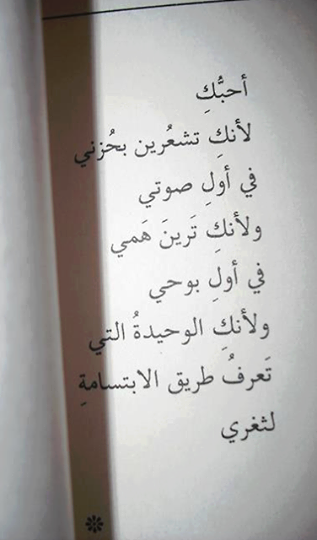 أحبُّكِ
لأنكِ تشعُرين بحُزني
في أولِ صوتي
ولأنكِ تَرينَ هَمي
في أولِ بوحي
ولأنكِ الوحيدةُ التي
تَعرفُ طريق الابتسامةِ
لثغري